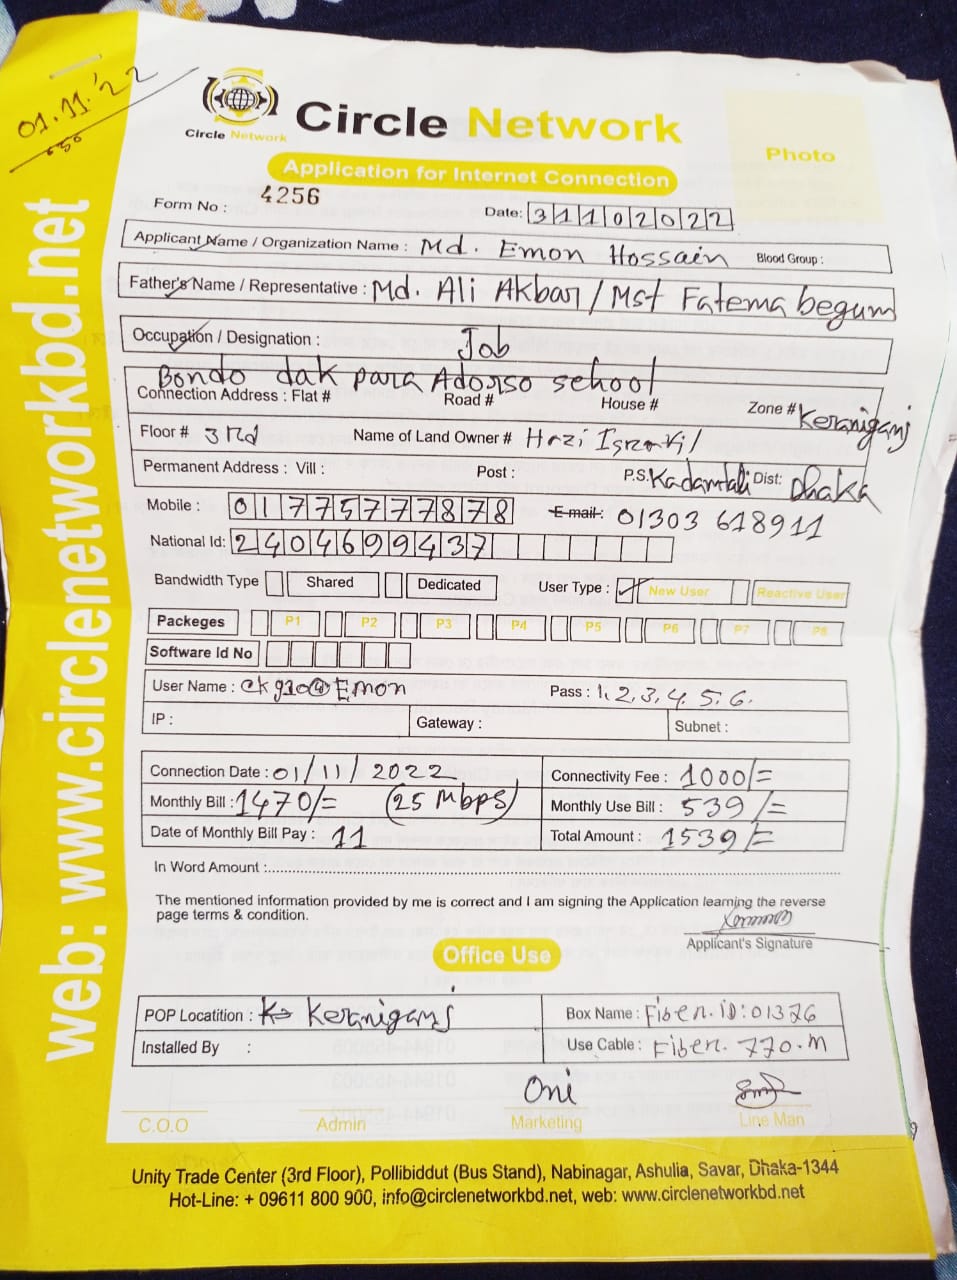 01.11.'22
Circle Network
Circle Network
Photo
Application for Internet Connection
Form No : 4256
Date: 31102022
Applicant Name / Organization Name : Md. Emon Hossain Blood Group :
Father's Name / Representative : Md. Ali Akbar / Mst Fatema begum
Occupation / Designation : Job
Bondo dak para Adorso school
Connection Address : Flat # Road # House # Zone # Keraniganj
Floor # 3rd Name of Land Owner # Hazi Israfil
Permanent Address : Vill : Post : P.S. Kadamtali Dist: Dhaka
Mobile : 01775777878 E-mail: 01303 618911
National Id: 2404699437
Bandwidth Type Shared Dedicated User Type : New User Reactive User
Packeges P1 P2 P3 P4 P5 P6 P7 P8
Software Id No
User Name : Pass : 1.2.3.4.5.6.
IP : Gateway : Subnet :
Connection Date : 01/11/2022 Connectivity Fee : 1000/=
Monthly Bill : 1470/= (25 Mbps) Monthly Use Bill : 539/=
Date of Monthly Bill Pay : 11 Total Amount : 1539/=
In Word Amount :
The mentioned information provided by me is correct and I am signing the Application learning the reverse
page terms & condition.
Applicant's Signature
Office Use
POP Locatition : Keraniganj Box Name : Fiber.id:01326
Installed By : Use Cable : Fiber. 770.m
Oni
C.O.O Admin Marketing Line Man
Unity Trade Center (3rd Floor), Pollibiddut (Bus Stand), Nabinagar, Ashulia, Savar, Dhaka-1344
Hot-Line: + 09611 800 900, info@circlenetworkbd.net, web: www.circlenetworkbd.net
web: www.circlenetworkbd.net